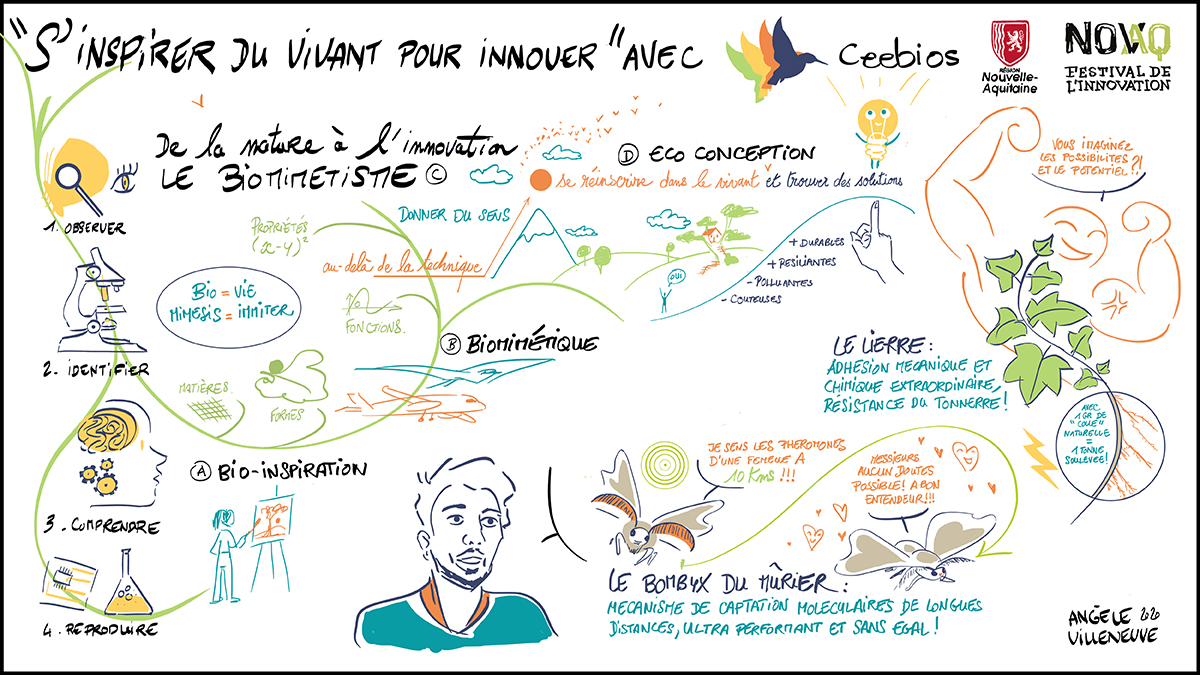 "S'INSPIRER DU VIVANT POUR INNOVER" AVEC
Ceebios
RÉGION
Nouvelle-
Aquitaine
NOVAQ
FESTIVAL DE
L'INNOVATION
De la nature à l'innovation
LE BIOMIMETISME C
1. OBSERVER
2. IDENTIFIER
3. COMPRENDRE
4. REPRODUIRE
BIO = VIE
MIMESIS = IMMITER
PROPRIÉTÉS
(x-y)²
FONCTIONS.
MATIÈRES
FORMES
A BIO-INSPIRATION
B BIOMIMÉTIQUE
DONNER DU SENS
au-delà de la technique
D ECO CONCEPTION
se réinscrire dans le vivant et trouver des solutions
OUI
+ DURABLES
+ RESILIANTES
- POLLUANTES
- COUTEUSES
VOUS IMAGINEZ
LES POSSIBILITES
ET LE POTENTIEL ?!
LE LIERRE :
ADHESION MECANIQUE ET
CHIMIQUE EXTRAORDINAIRE,
RÉSISTANCE DU TONNERRE !
AVEC
1 GR DE
"COLLE"
NATURELLE
=
1 TONNE
SOULEVÉE !
JE SENS LES PHEROMONES
D'UNE FEMELLE A
10 KMS !!!
MESSIEURS
AUCUN DOUTES
POSSIBLE ! A BON
ENTENDEUR !!!
LE BOMBYX DU MÛRIER :
MECANISME DE CAPTATION MOLECULAIRES DE LONGUES
DISTANCES, ULTRA PERFORMANT ET SANS EGAL !
ANGÈLE 2020
VILLENEUVE